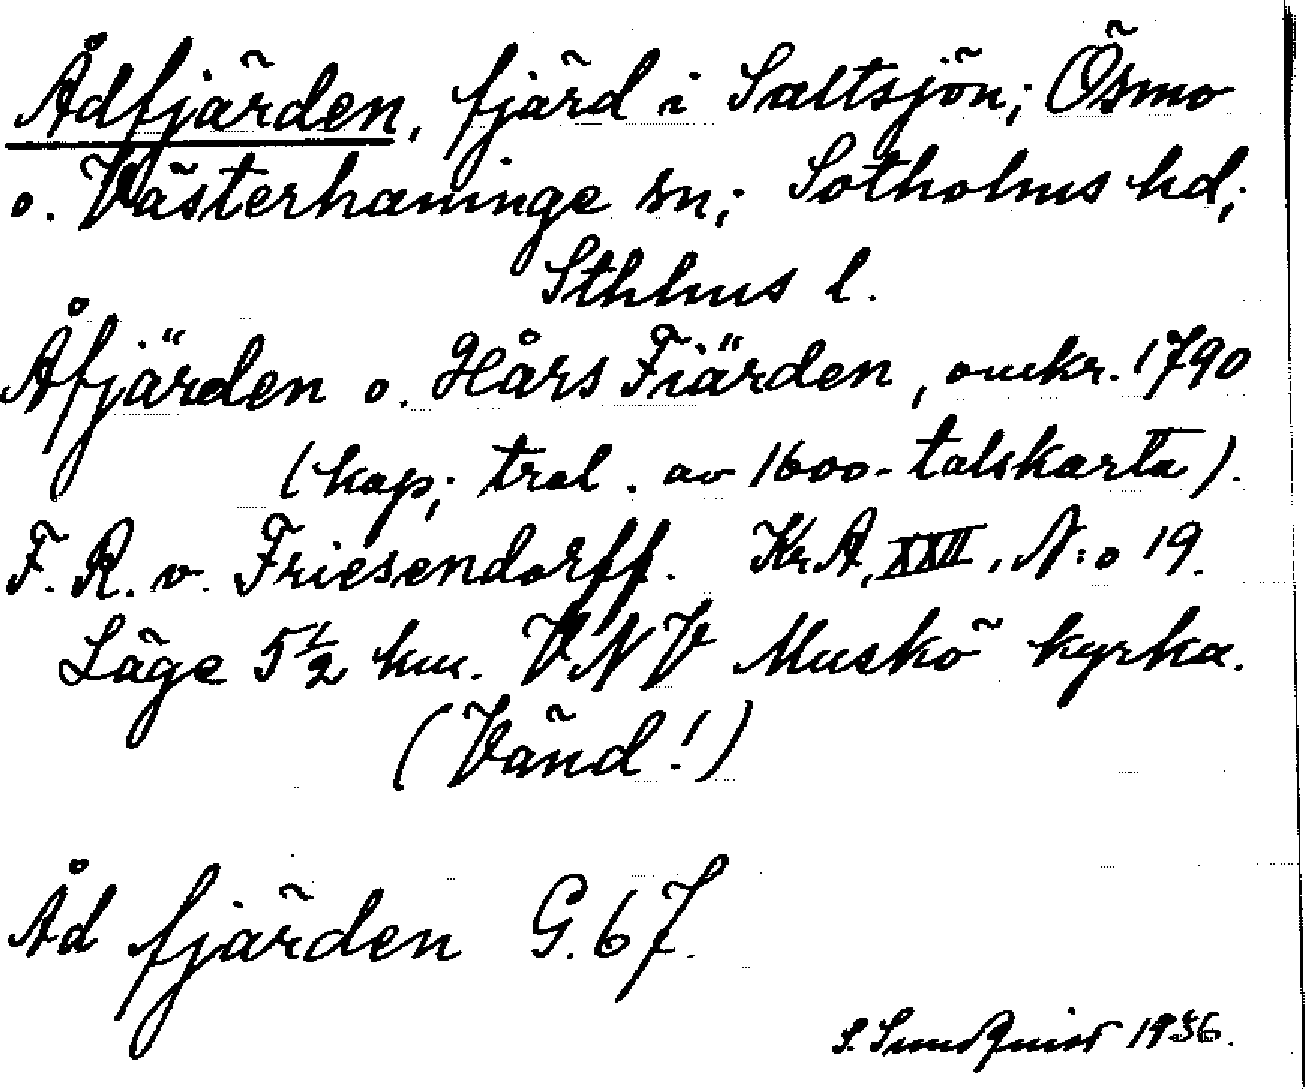 Ådfjärden, fjärd i Saltsjön; Ösmo
o. Västerhaninge sn; Sotholms hd;
Sthlms l.
Åfjärden o. Hårs Fiärden, omkr. 1790
(kap; trol. av 1600-talskarta).
F. R. v. Friesendorff. Kr.A, XXII, N:o 19.
Läge 5½ km. VNV Muskö kyrka.
(Vänd!)
Åd fjärden G. 67.
S. Sundquist 1936.